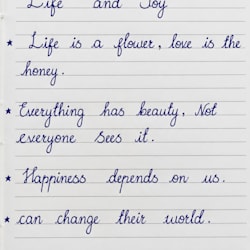 Life and Joy
★ Life is a flower, love is the
honey.
★ Everything has beauty, Not
everyone sees it.
★ Happiness depends on us.
★ can change their world.